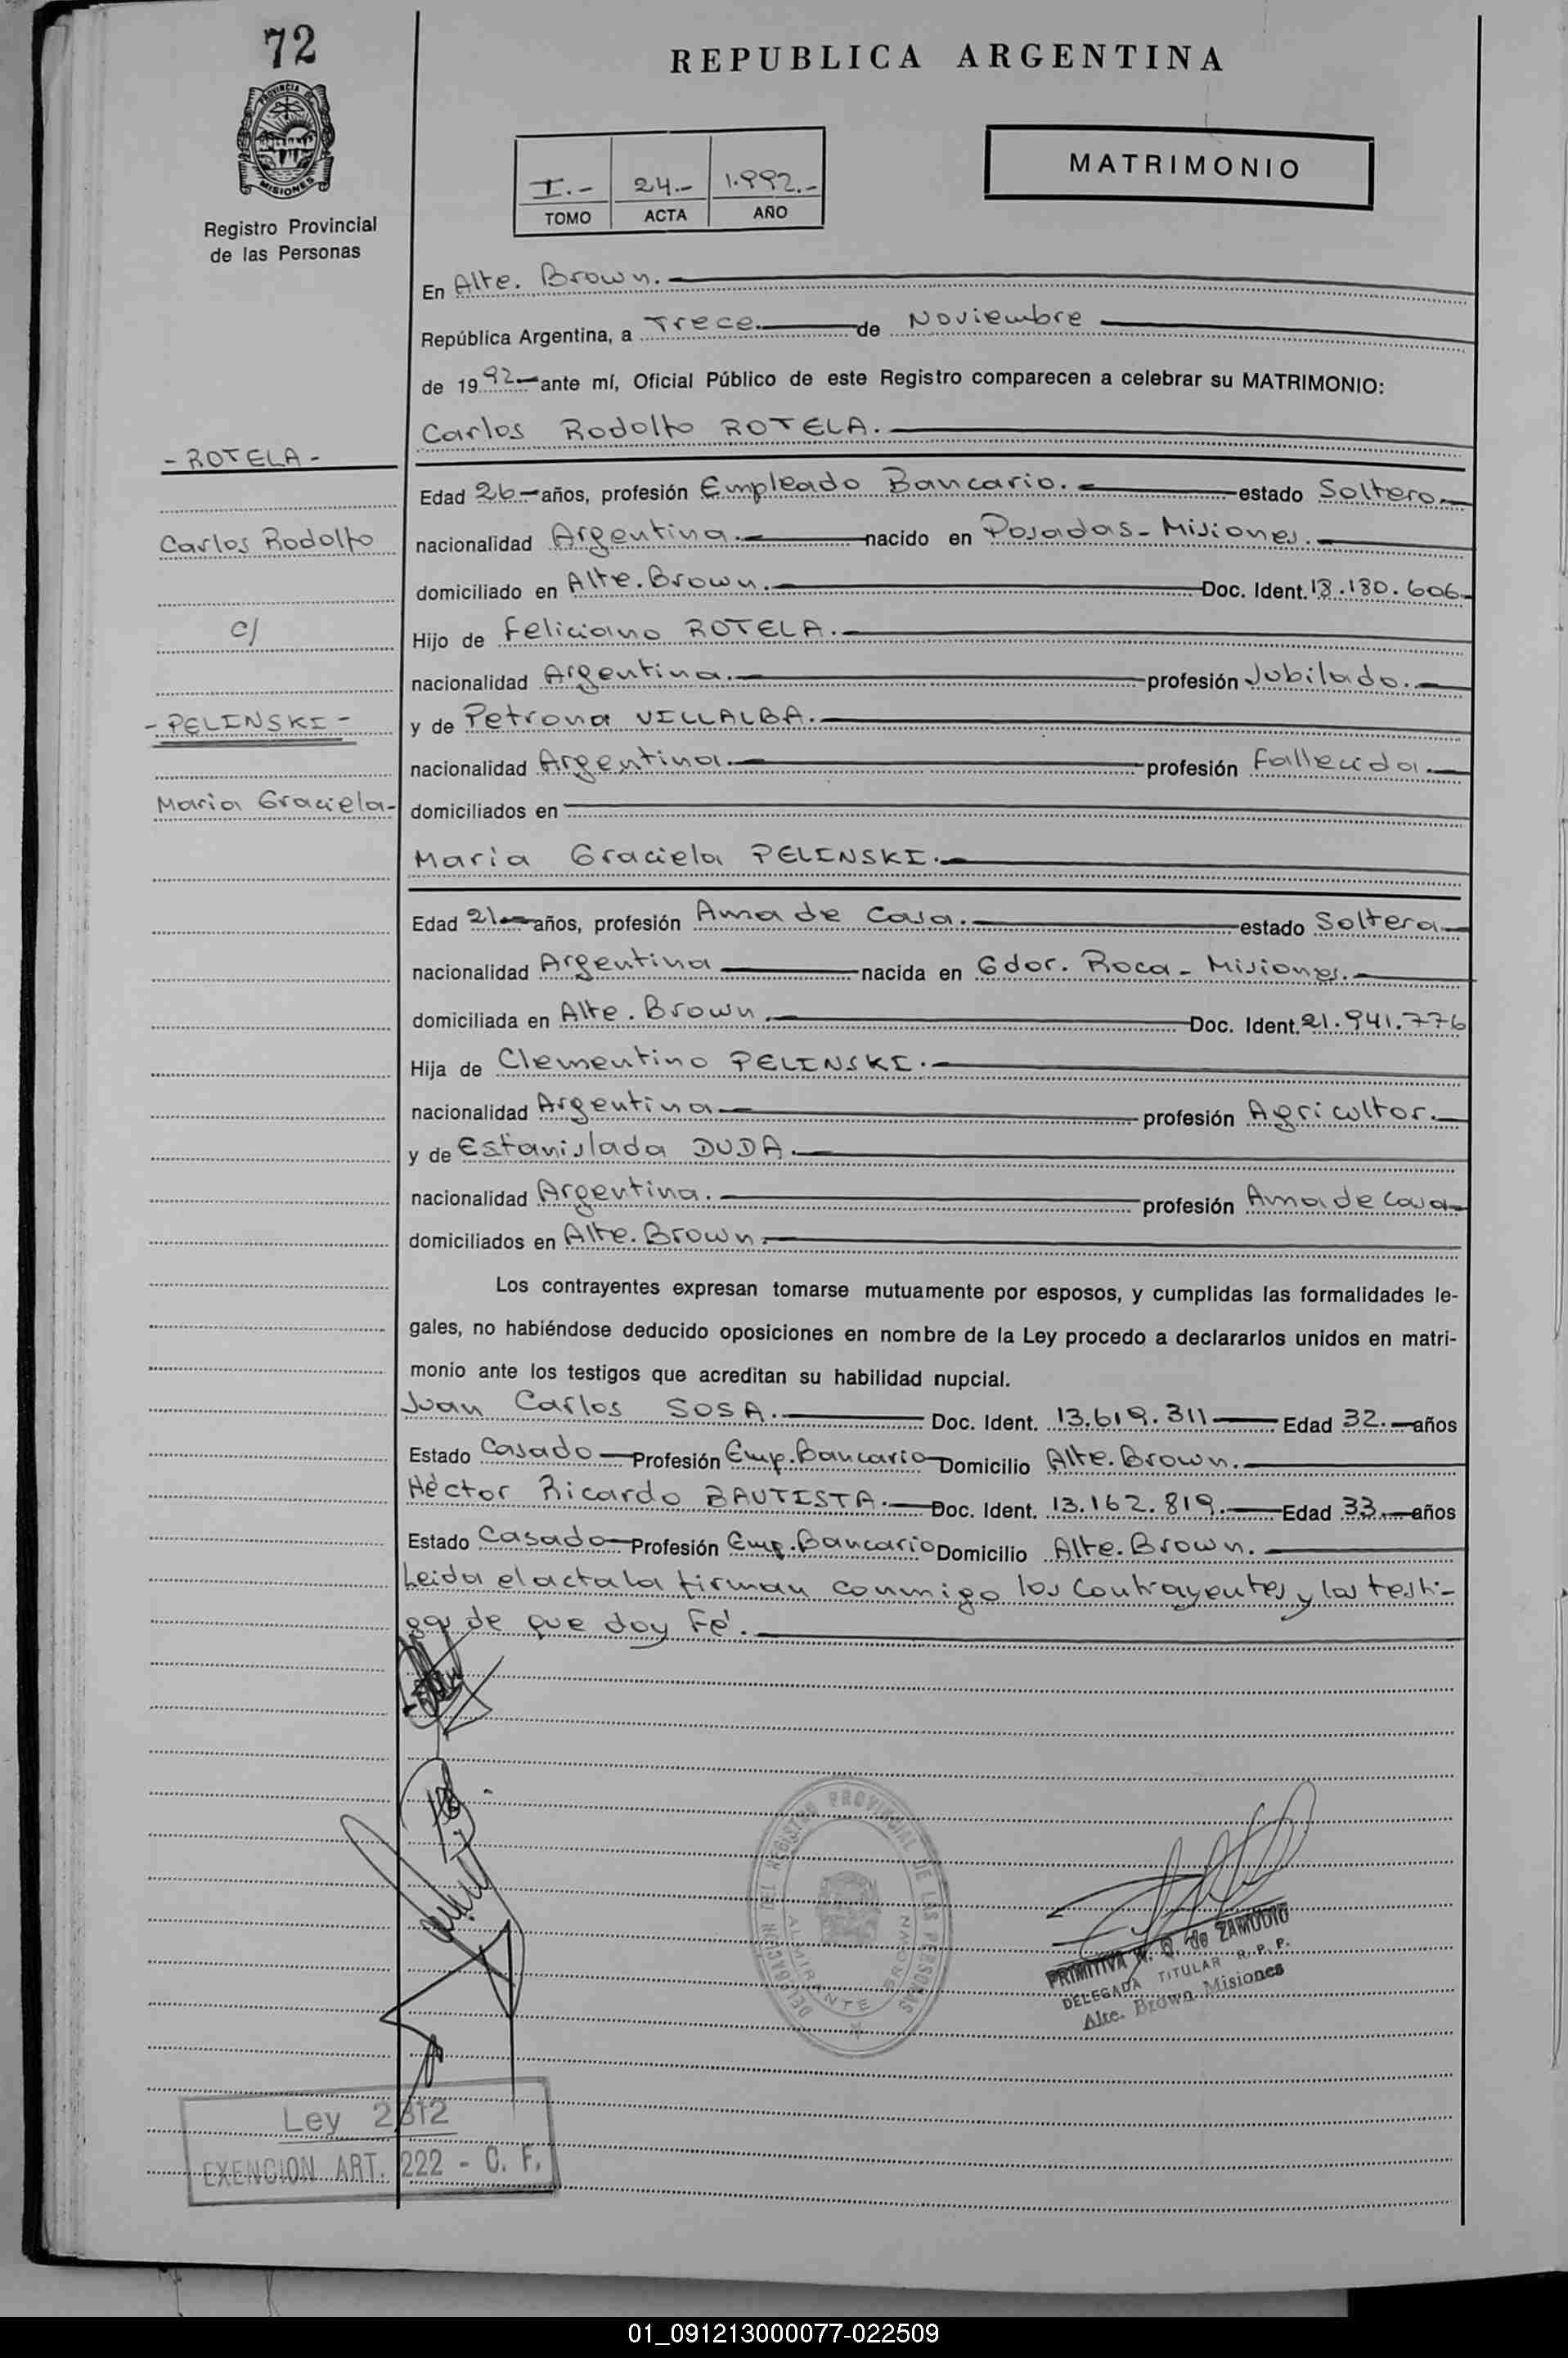 72
PROVINCIA DE
MISIONES
Registro Provincial
de las Personas
REPUBLICA ARGENTINA
I.- 24.- 1.992.-
TOMO ACTA AÑO
MATRIMONIO
En Alte. Brown.
República Argentina, a Trece. de Noviembre
de 1992 ante mí, Oficial Público de este Registro comparecen a celebrar su MATRIMONIO:
Carlos Rodolfo ROTELA.
- ROTELA -
Edad 26 años, profesión Empleado Bancario. estado Soltero.
Carlos Rodolfo
nacionalidad Argentina. nacido en Posadas - Misiones.
domiciliado en Alte. Brown. Doc. Ident. 18.180.606
c/
Hijo de Feliciano ROTELA.
nacionalidad Argentina. profesión Jubilado.
- PELINSKI -
y de Petrona VILLALBA.
nacionalidad Argentina. profesión Fallecida.
Maria Graciela-
domiciliados en
Maria Graciela PELINSKI.
Edad 21 años, profesión Ama de Casa. estado Soltera
nacionalidad Argentina nacida en Gdor. Roca - Misiones.
domiciliada en Alte. Brown. Doc. Ident. 21.941.776
Hija de Clementino PELINSKI.
nacionalidad Argentina profesión Agricultor.
y de Estanislada DUDA.
nacionalidad Argentina. profesión Ama de Casa
domiciliados en Alte. Brown.
Los contrayentes expresan tomarse mutuamente por esposos, y cumplidas las formalidades le-
gales, no habiéndose deducido oposiciones en nombre de la Ley procedo a declararlos unidos en matri-
monio ante los testigos que acreditan su habilidad nupcial.
Juan Carlos SOSA. Doc. Ident. 13.619.311 Edad 32. años
Estado Casado Profesión Emp. Bancario Domicilio Alte. Brown.
Héctor Ricardo BAUTISTA. Doc. Ident. 13.162.819. Edad 33. años
Estado Casado Profesión Emp. Bancario Domicilio Alte. Brown.
Leida el acta la firman conmigo los Contrayentes y los testi-
gos de que doy Fé.
DELEGACION DEL REGISTRO PROVINCIAL DE LAS PERSONAS
ALMIRANTE BROWN
PRIMITIVA de ZAMUDIO
DELEGADA TITULAR R. P. P.
Alte. Brown Misiones
Ley 2812
EXENCION ART. 222 - C. F.
01_091213000077-022509